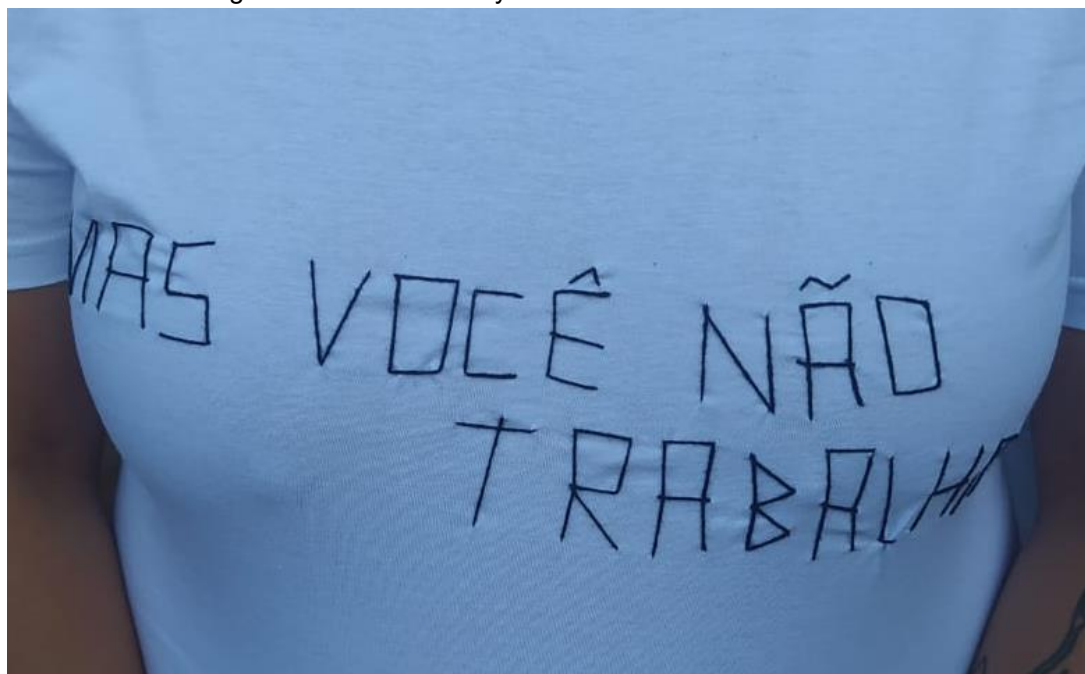 MAS VOCÊ NÃO
TRABALHA